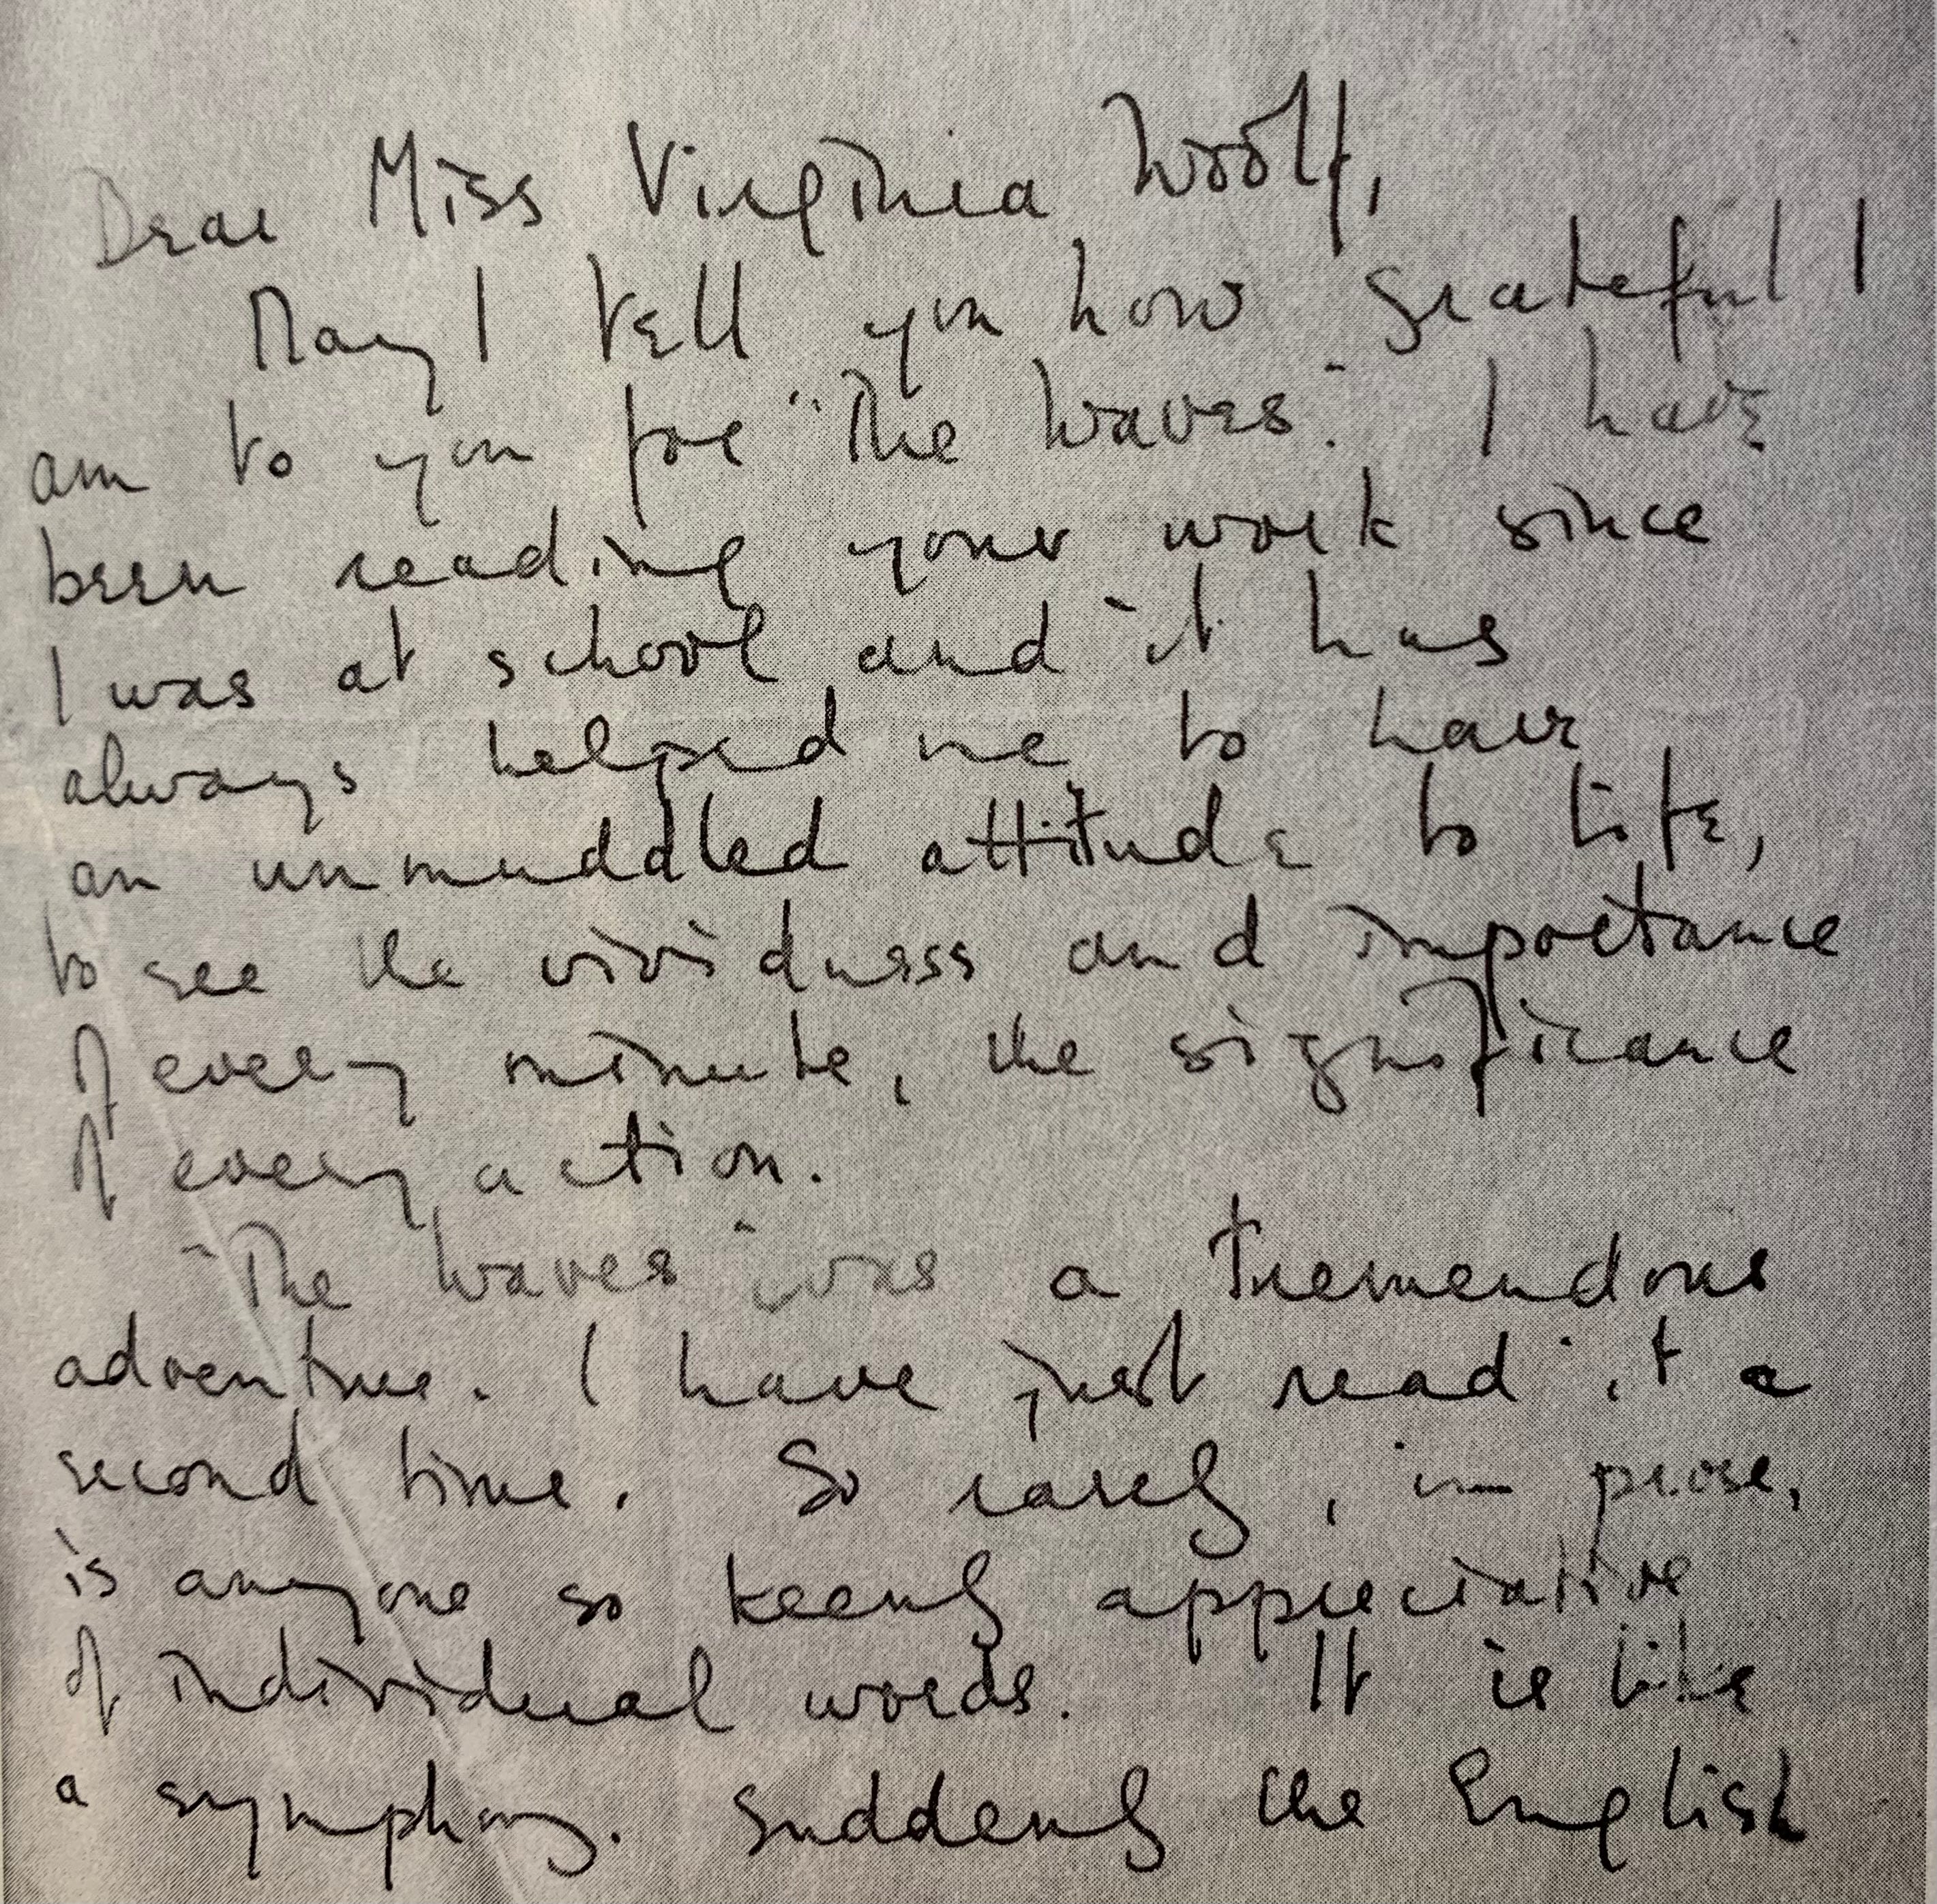 Dear Miss Virginia Woolf,
May I tell you how grateful I
am to you for "The Waves". I have
been reading your work since
I was at school and it has
always helped me to have
an unmuddled attitude to life,
to see the vividness and importance
of every minute, the significance
of every action.
"The Waves" was a tremendous
adventure. I have just read it a
second time. So rarely, in prose,
is anyone so keenly appreciative
of individual words. It is like
a symphony. Suddenly the English